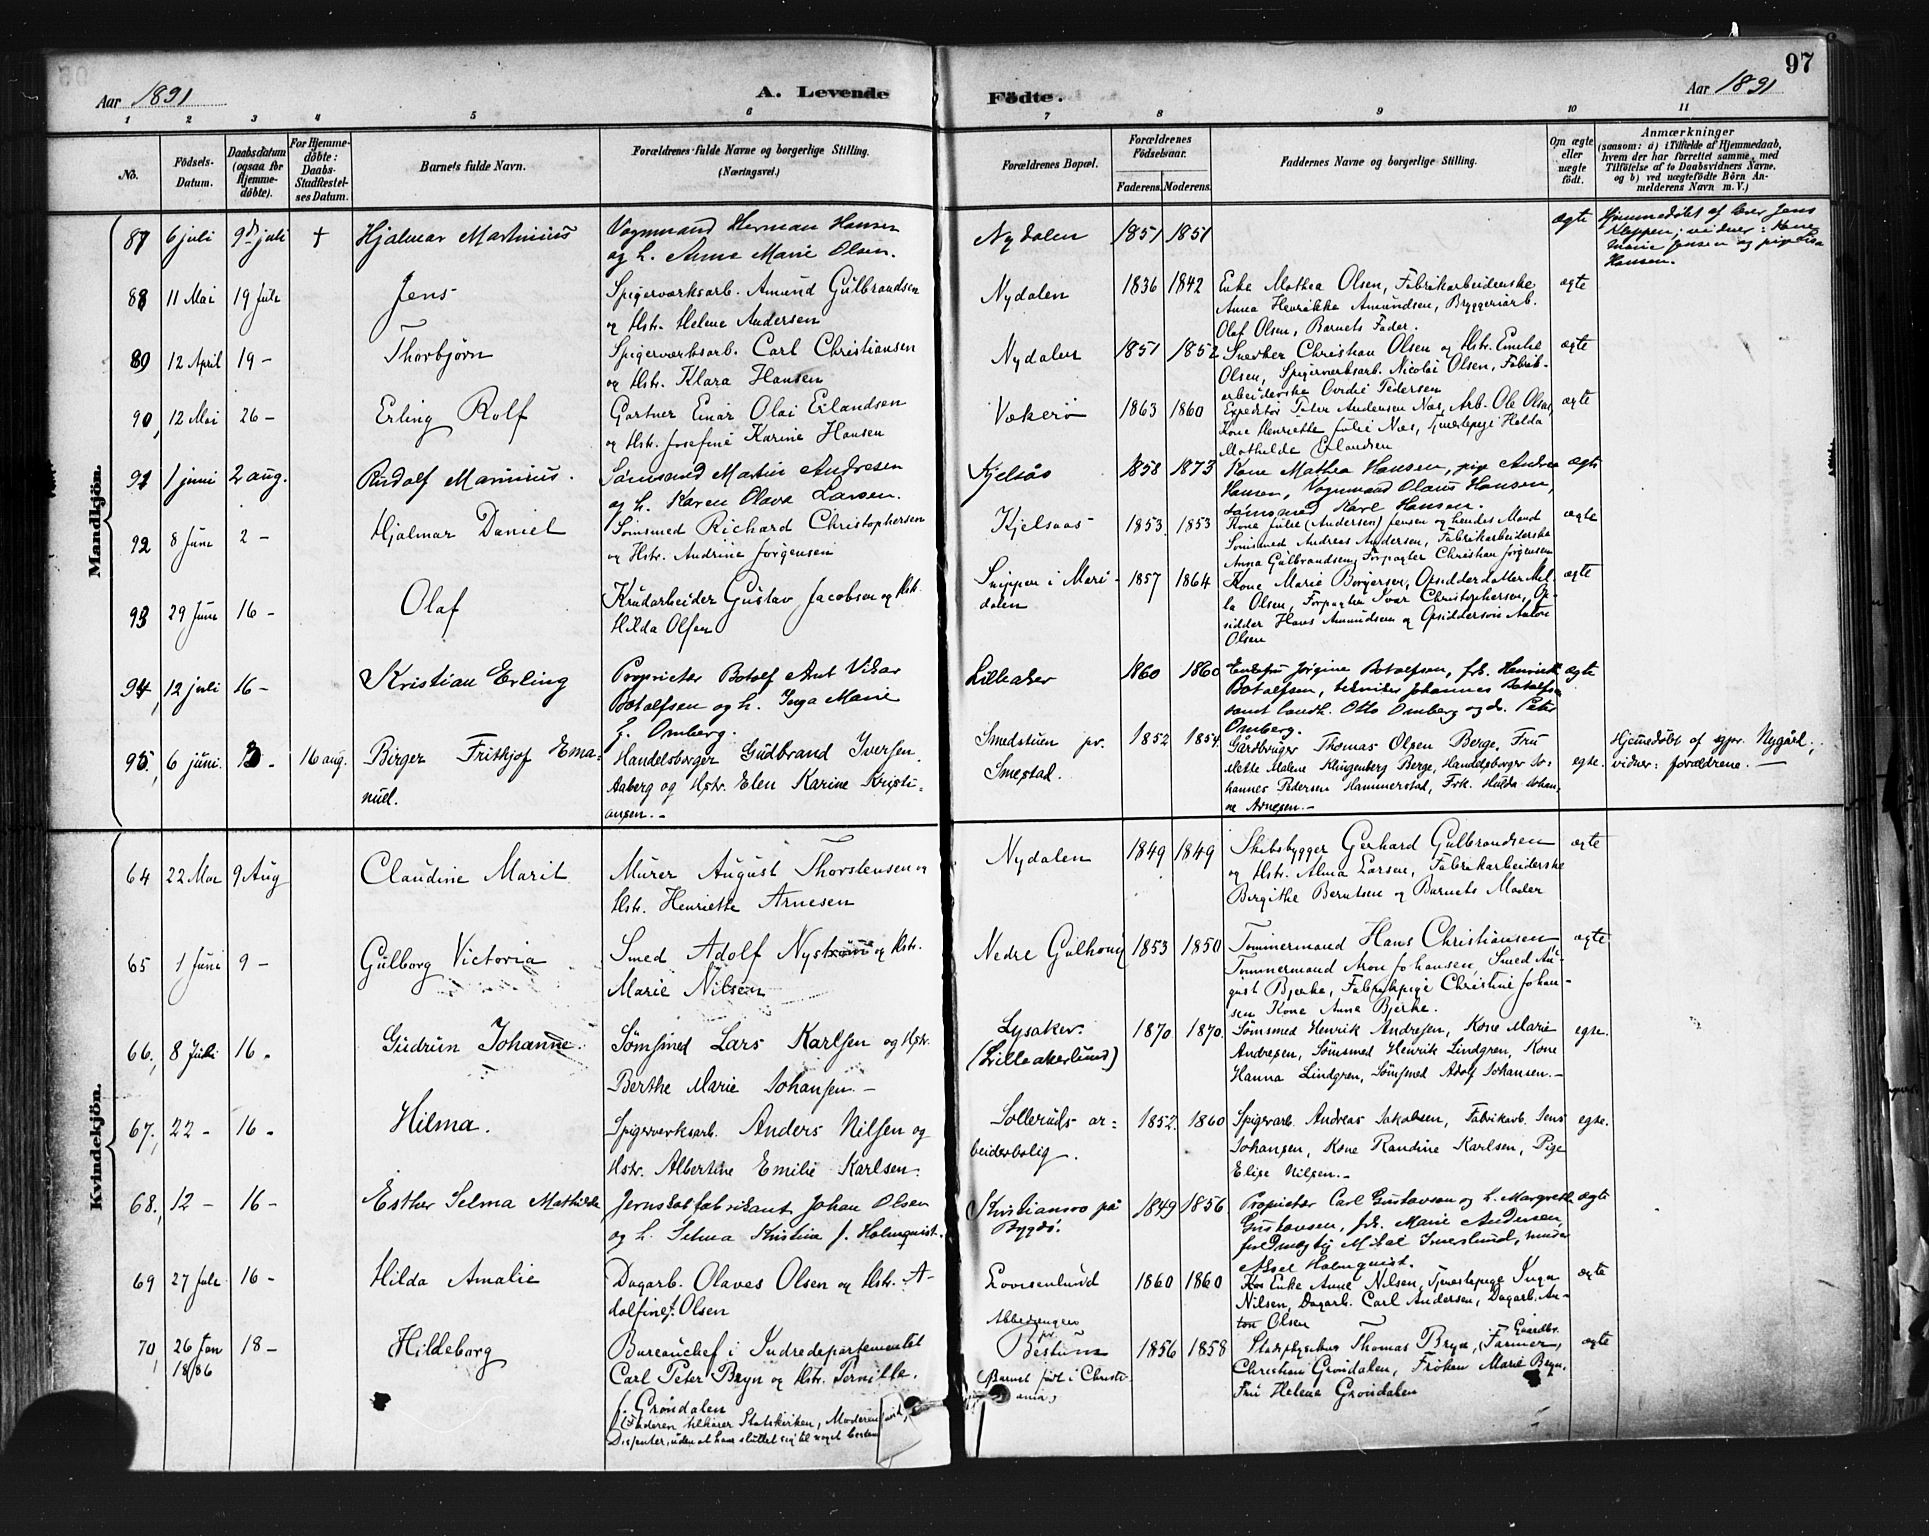 97
Aar 1891
A. Levende
Födte.
Aar 1891
1 2 3 4 5 6 7 8 9 10 11
No.
Födsels-
Datum.
Daabsdatum
(ogsaa for
Hjemme-
döbte).
For Hjemme-
döbte:
Daabs-
Stadfæstel-
ses Datum.
Barnets fulde Navn.
Forældrenes fulde Navne og borgerlige Stilling.
(Næringsvei.)
Forældrenes Bopæl.
Forældrenes
Födselsaar.
Faderens. Moderens.
Faddernes Navne og borgerlige Stilling.
Om ægte
eller
uægte
født.
Anmærkninger
(saasom: a) i Tilfælde af Hjemmedaab,
hvem der har forrettet samme, med
Tilföielse af to Daabsvidners Navne,
og b) ved uægtefödte Börn An-
melderens Navn m. V.)
Mandkjön.
87 6 juli 9de juli + Hjalmar Martinius
Vognmand Herman Hansen
og h. Anna Marie Olsen.
Nydalen 1851 1851 ægte
Hjemmedøbt af lærer Jens
Kloppen; vidner: Kone
Marie Jensen og pige
Hansen.
88 11 Mai 19 Juli Jens
Spigerværksarb. Amund Gulbrandsen
og Hstr. Helene Andersen
Nydalen 1836 1842
Enke Mathea Olsen, Fabrikarbeiderske
Anna Henrikke Amundsen, Bryggeriarb.
Olaf Olsen, Barnets Fader.
ægte
89 12 April 19 - Thorbjørn
Spigerværksarb. Carl Christiansen
og Hstr. Klara Hansen
Nydalen 1851 1852
Snedker Christian Olsen og Hstr. Emilie
Olsen, Spigerverksarb. Nicolai Olsen, Fabrik-
arbeiderske Pedersen
ægte
90, 12 Mai 26 - Erling Rolf
Gartner Einar Olai Erlandsen
og Hstr. Josefine Karine Hansen
Vækerø 1863 1860
Expeditør Peter Andersen Næs, Arb. Ole Olsen,
Kone Henriette Julie Næs, Tjenestepige Hulda
Mathilde Erlandsen
ægte
91 1 juni 2 aug. Rudolf Marinius.
Sømsmed Martin Andresen
og h. Karen Olava Larsen.
Kjelsås 1858 1873
Kone Mathea Hansen, pige Andrea
Hansen, Vognmand Olaus Hansen,
sømsmed Karl Hansen.
ægte
92 8 Juni 2 - Hjalmar Daniel
Sømsmed Richard Christophersen
og Hstr. Andrine Jørgensen
Kjelsaas 1853. 1853
Kone Julie (Andersen) Jensen og hendes Mand
Sømsmed Andreas Andersen, Fabrikarbeiderske
Anna Gulbrandsen, Forpagter Christian Jørgensen
ægte
93 29 Juni 16 - Olaf
Krudarbeider Gustav Jacobsen og Hstr.
Hilda Olsen
Snippen i Mari-
dalen
1857 1864
Kone Marie Borgersen, Opsidderdatter Mel-
la Olsen, Forpagter Ivar Christophersen, Op-
sidder Hans Amundsen og Opsiddersøn Anton
Olsen
ægte
94, 12 juli 16 - Kristian Erling
Proprietær Botolf Arnt Vikar
Botolfsen og h. Inga Marie
f. Omberg.
Lilleaker 1860 1860
Enkefru Jørgine Botolfsen, frk. Henrik
Botolfsen, tekniker Johannes Botolfsen
samt landh. Otto Omberg og do. Peter
Omberg.
ægte
95., 6 juni. - 16 aug. Birger Frithjof Ema-
nuel.
Handelsborger Gudbrand Iversen
Aaberg og Hstr. Elen Karine Kristi-
ansen.-
Smedstuen pr.
Smestad.
1852 1854.
Gårdbruger Thomas Olsen Berge, Fru
Mette Malene Klingenberg Berge, Handelsborger Jo-
hannes Pedersen Hammerstad, Frk. Hulda Johan-
ne Arnesen.-
egte.
Hjemmedøbt af sgpr. Nygård;
vidner: forældrene. —
Kvindekjön.
64 22 Mai 9 Aug Claudine Marit
Murer August Thorstensen og
Hstr. Henriette Arnesen
Nydalen 1849 1849
Skibsbygger Gerhard Gulbrandsen
og Hstr. Alma Larsen, Fabrikarbeiderske
Birgithe Berntsen og Barnets Moder
ægte
65 1 Juni 9 - Gulborg Victoria
Smed Adolf Nystrøm og Hstr.
Marie Nilsen
Nedre Gulhoug 1853 1850
Tømmermand Hans Christiansen
Tømmermand Aron Johansen, Smed Au-
gust Bjerke, Fabrikpige Christine Johan-
sen Kone Anna Bjerke.
ægte
66., 8 Juli 16 - Gudrun Johanne.
Sømsmed Lars Karlsen og Hstr.
Berthe Marie Johansen -
Lysaker
(Lilleakerlund)
1870 1870.
Sømsmed Henrik Andresen, Kone Marie
Andresen, Sømsmed Henrik Lindgren, Kone
Hanna Lindgren, Sømsmed Adolf Johansen.-
egte.
67., 22 - 16 - Hilma.
Spigerverksarb. Anders Nilsen og
Hstr. Albertine Emilie Karlsen.
Solleruds ar-
beiderbolig.
1852. 1860
Spigerarb. Andreas Jakobsen, Fabrikarb. Jens
Johansen, Kone Randine Karlsen, Pige
Elise Nilsen.-
egte.
68., 12 - 16 - Esther Selma Mathilde
Jernsatfabrikant Johan Olsen
og h. Selma Kristina f. Holmquist.
Kristiansro på
Bygdø.
1849 1856
Proprietær Carl Gustavson og h. Margrethe
Gustavsen, frk. Marie Andersen,
fuldmægtig Mikal Smerslund,
Aksel Holmquist.
ægte
69 27 Juli 16 - Hilda Amalie
Dagarb. Olaves Olsen og Hstr. A-
dolfine f. Olsen
Lovisenlund
1860 1860
Enke Anne Nilsen, Tjenestepige Inga
Nilsen, Dagarb. Carl Andersen, Dagarb. An-
ton Olsen
ægte
70, 26 Jan
1886
18 - Hildeborg
Bureauchef i Indredepartementet
Carl Peter Bryn og Hstr. Pernille.
f. Grøndalen
(Faderen tilhører Statskirken, Moderen
Dissenter, uden at have sluttet sig til noget
Abbediengen
pr.
Bestum
(Barnet født i Christi-
ania)
1856 1858
Statsphysikus Thomas Bryn, (Farmer, Gaardbr.
Christian Grøndalen, Frøken Marie Bryn,
Fru Helene Grøndalen
ægte